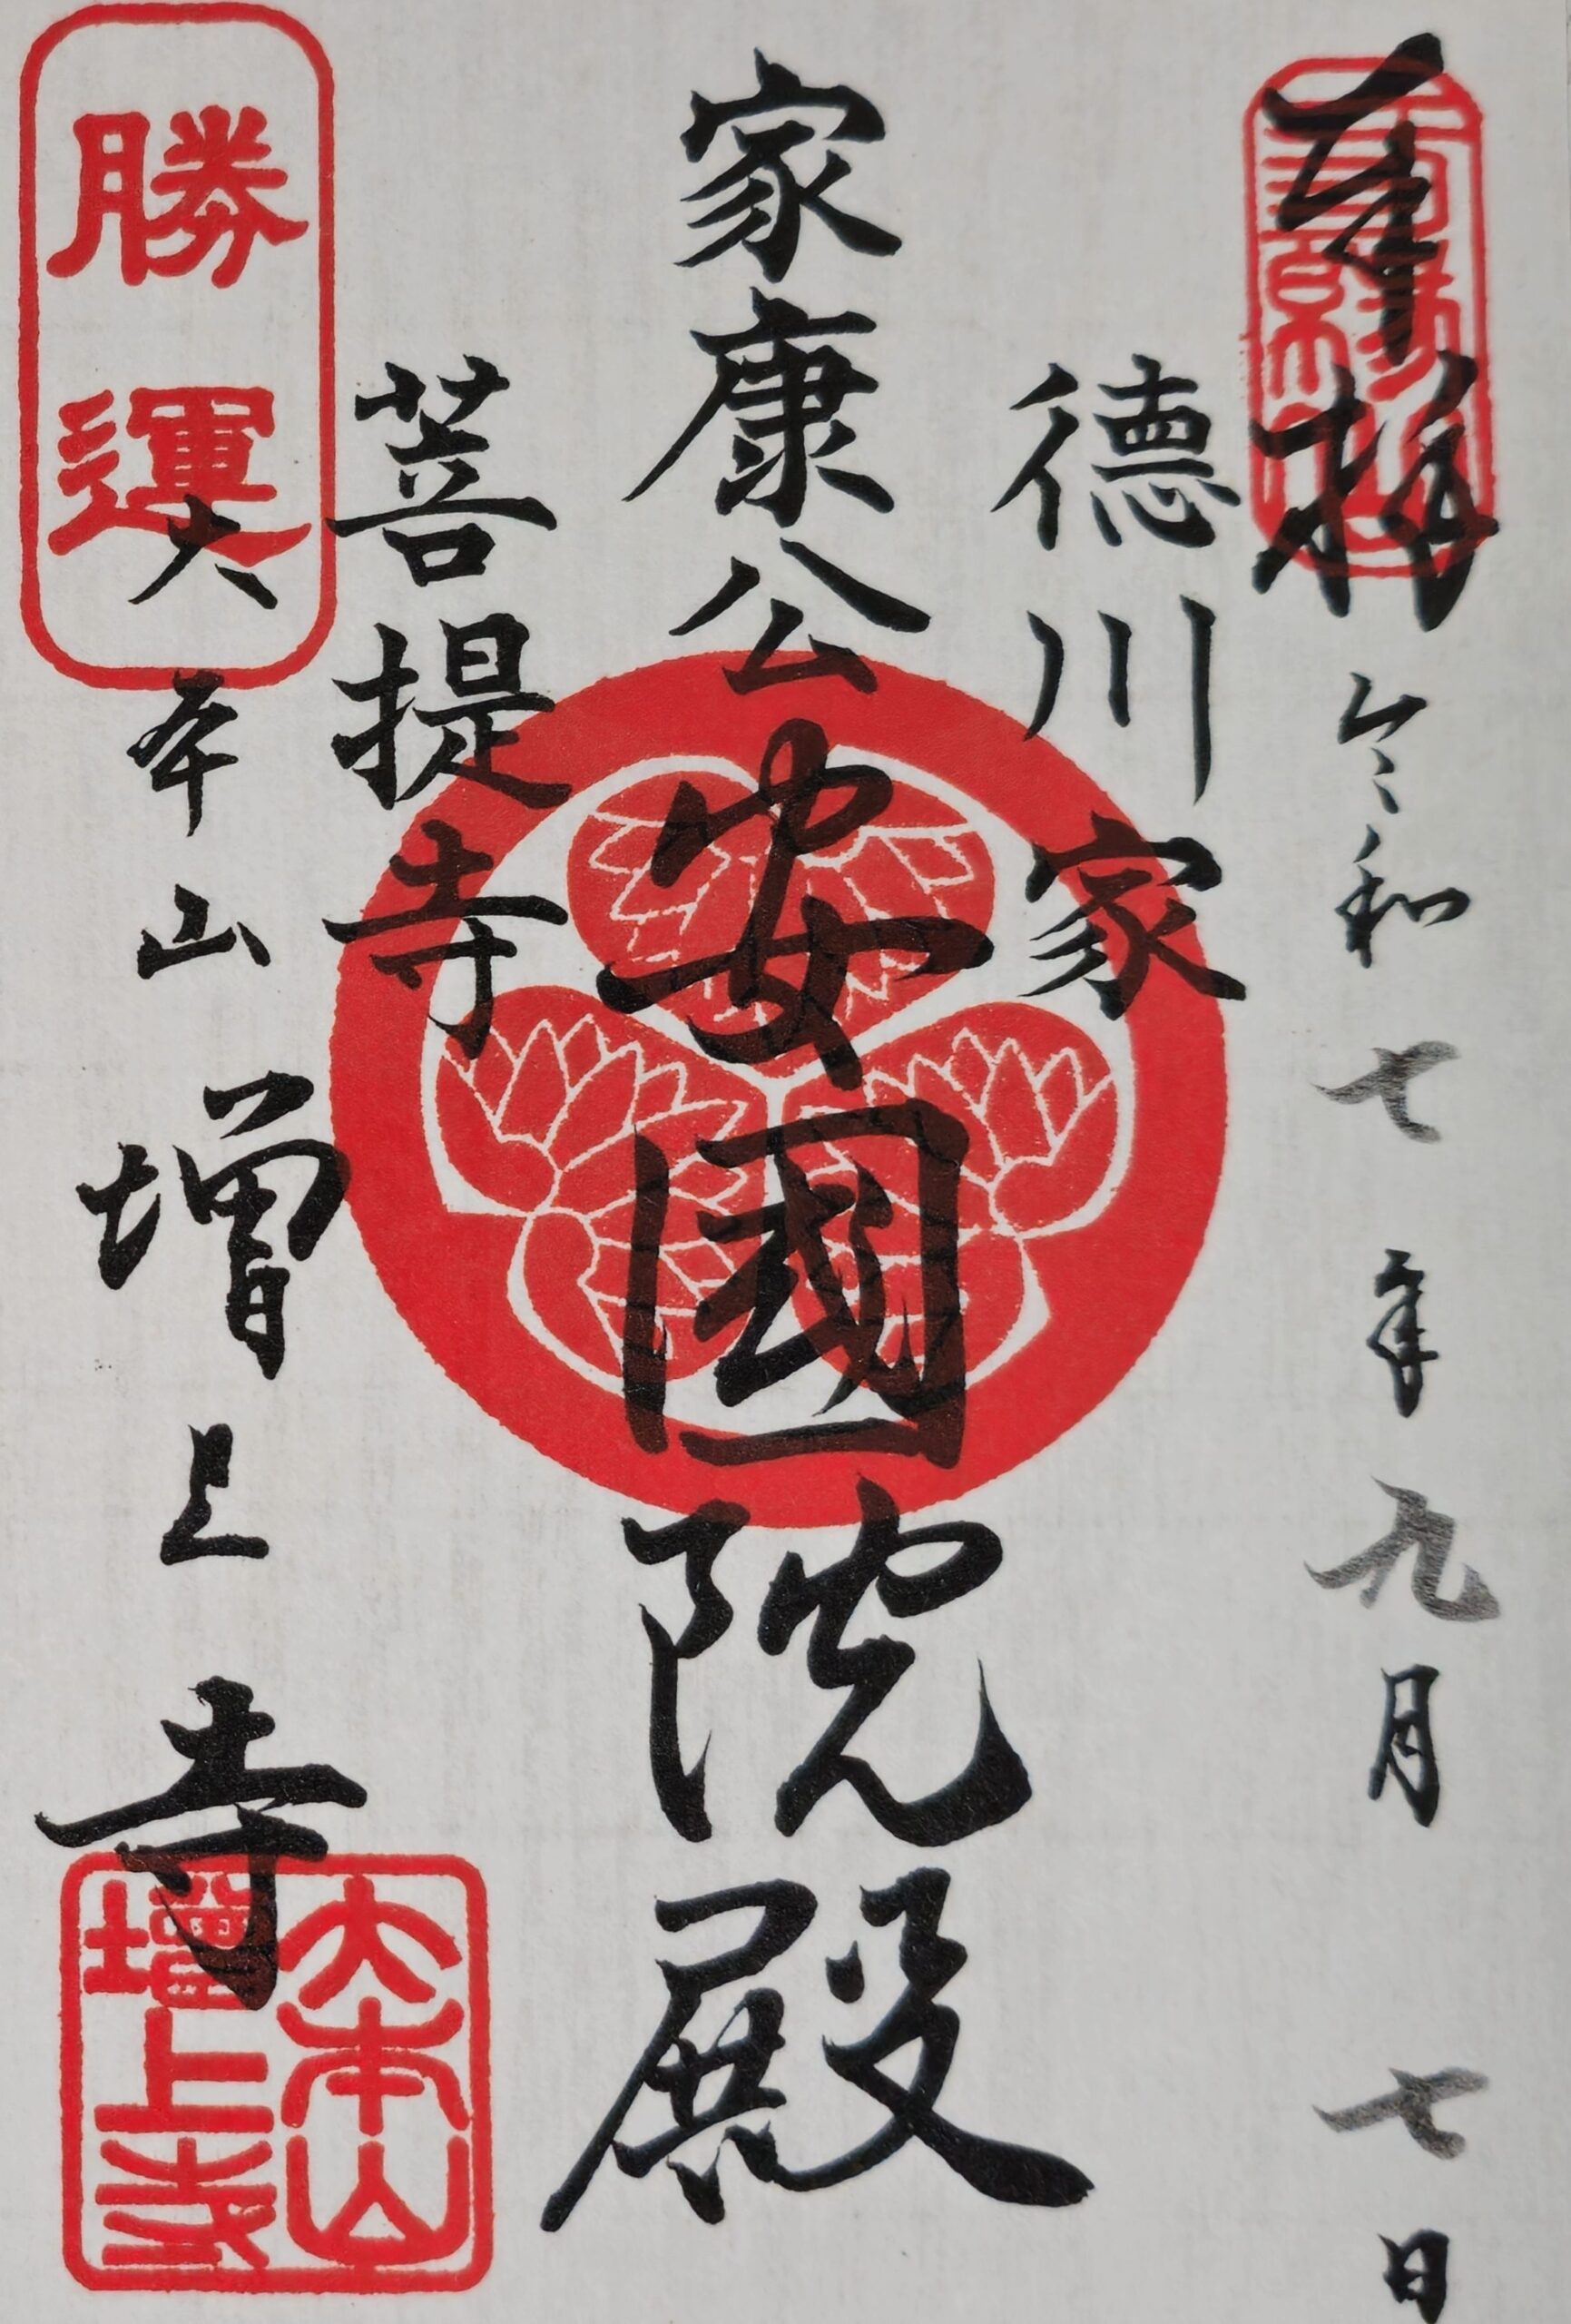 奉拝
令和七年九月七日
德川家
家康公
安國院殿
菩提寺
勝運
大本山 増上寺
大本山
增上寺